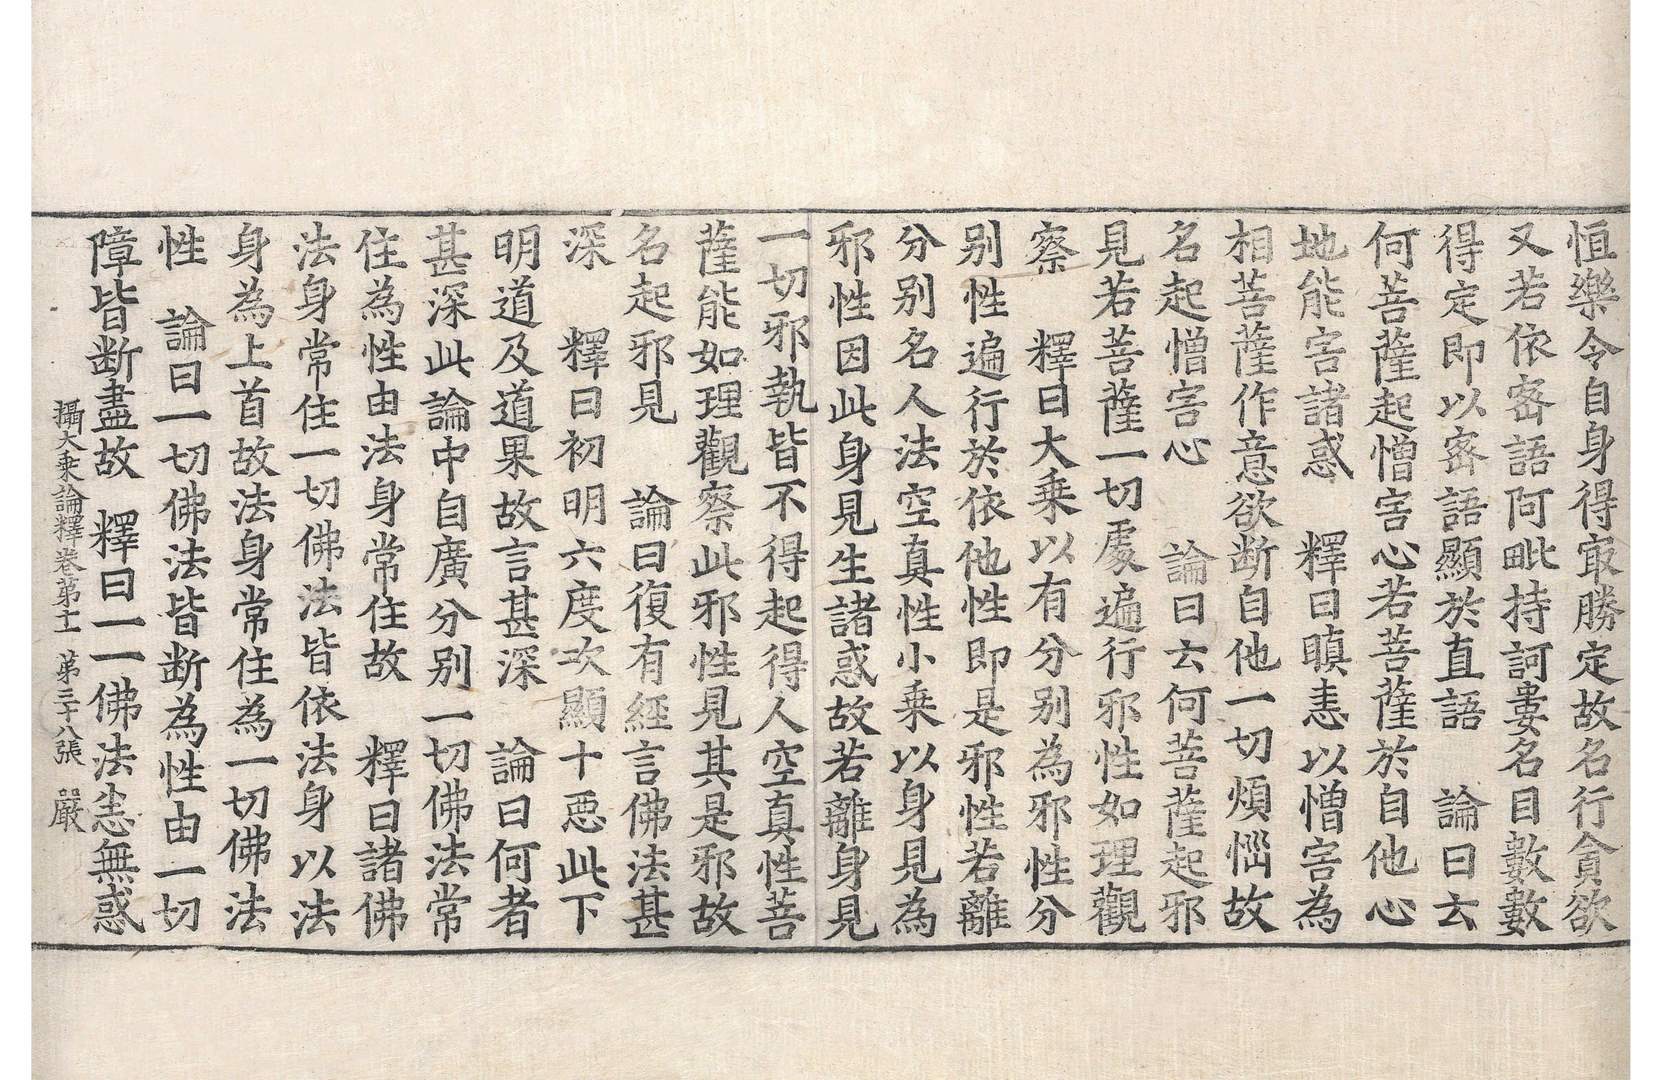 恒樂令自身得㝡勝定故名行貪欲
又若依宻語阿毗持訶婁名目數數
得定即以宻語顯於直語　論曰云
何菩薩起憎害心若菩薩於自他心
地能害諸惑　釋曰瞋恚以憎害為
相菩薩作意欲断自他一切煩惱故
名起憎害心　論曰云何菩薩起邪
見若菩薩一切處遍行邪性如理觀
察　釋曰大乗以有分别為邪性分
别性遍行於依他性即是邪性若離
分别名人法空真性小乗以身見為
邪性因此身見生諸惑故若離身見
一切邪執皆不得起得人空真性菩
薩能如理觀察此邪性見其是邪故
名起邪見　論曰復有經言佛法甚
深　釋曰初明六度次顯十惡此下
明道及道果故言甚深　論曰何者
甚深此論中自廣分别一切佛法常
住為性由法身常住故　釋曰諸佛
法身常住一切佛法皆依法身以法
身為上首故法身常住為一切佛法
性　論曰一切佛法皆断為性由一切
障皆断盡故　釋曰一一佛法恙無惑
攝大乗論釋卷第十一　第三十八張　嚴